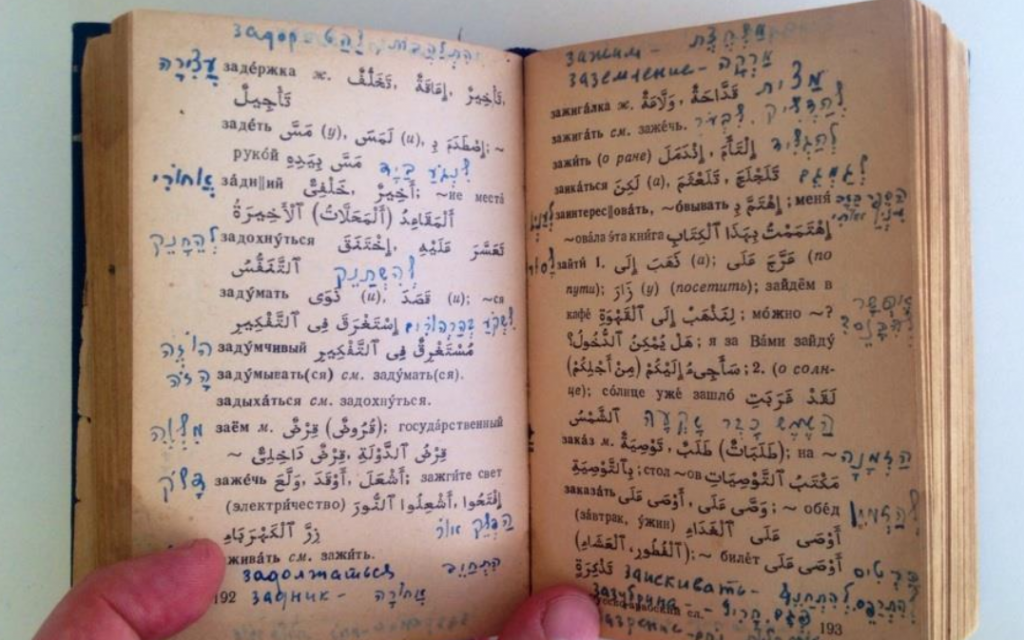 עֲצִירָה
заде́ржка ж. تَأْخِيرٌ, إِعَاقَةٌ, تَخَلُّفٌ,
تَأْجِيلٌ
заде́ть مَسَّ (у), لَمَسَ (и), إِصْطَدَمَ بِ; ~
руко́й مَسَّ بِيَدِهِ לנגע ביד
אחורי за́дн||ий أَخِيرٌ, خَلْفِىٌّ; ~ие места́
اَلْمَقَاعِدُ (اَلْمَحَلَّاتُ) ٱلْأَخِيرَةُ
להחנק задохну́ться إِخْتَنَقَ, تَعَسَّرَ عَلَيْهِ
ٱلتَّنَفُّسُ להשתנק
заду́мать نَوَى (и), قَصَدَ (и); ~ся
إِسْتَغْرَقَ فِى ٱلتَّفْكِيرِ
הוזה заду́мчивый مُسْتَغْرِقٌ فِى ٱلتَّفْكِيرِ
заду́мывать(ся) см. заду́мать(ся).
задыха́ться см. задохну́ться.
מלוה заём м. قَرْضٌ (قُرُوضٌ); госуда́рственный
~ قَرْضُ ٱلدَّوْلَةِ, قَرْضٌ دَاخِلِىٌّ
заже́чь أَشْعَلَ, أَوْقَدَ, وَلَّعَ; зажги́те свет
(электри́чество) إِفْتَحُوا, أَشْعِلُوا ٱلنُّورَ
زِرَّ ٱلْكَهْرَبَاءِ הדלק אור
жива́ть см. зажи́ть.
задолжаться
192 задник -
зажим -
заземление -
зажига́лка ж. قَدَّاحَةٌ, وَلَّاعَةٌ מצית
зажига́ть см. заже́чь. להדליק
зажи́ть (о ране) إِلْتَأَمَ, إِنْدَمَلَ להגליד
заика́ться لَكِنَ (а), تَلَعْثَمَ, تَلَجْلَجَ לגמגם
заинтересо||ова́ть, ~о́вывать إِهْتَمَّ بِ; меня́
~ова́ла э́та кни́га إِهْتَمَمْتُ بِهَذَا ٱلْكِتَابِ
зайти́ 1. ذَهَبَ إِلَى (а); عَرَّجَ عَلَى (по
пути); زَارَ (у) (посетить); зайдём в
кафе́ لِنَذْهَبْ إِلَى ٱلْقَهْوَةِ; мо́жно ~?
هَلْ يُمْكِنُ ٱلدُّخُولُ؟; я за Ва́ми зайду́
سَأَجِىءُ إِلَيْكُمْ (مِنْ أَجْلِكُمْ); 2. (о солн-
це); со́лнце уже́ зашло́ لَقَدْ غَرَبَتِ
ٱلشَّمْسُ השמש כבר שקעה
зака́з м. طَلَبٌ (طَلَبَاتٌ), تَوْصِيَةٌ; на ~ הזמנה
بِٱلتَّوْصِيَةِ; стол ~ов مَكْتَبُ ٱلتَّوْصِيَاتِ
заказа́ть وَصَّى عَلَى, أَوْصَى عَلَى; ~ обе́д
(за́втрак, у́жин) أَوْصَى عَلَى ٱلْغَدَاءِ
(ٱلْفُطُورِ, ٱلْعَشَاءِ); ~ биле́т أَوْصَى عَلَى
تَذْكِرَةٍ заискивать -
зазубрина -
193